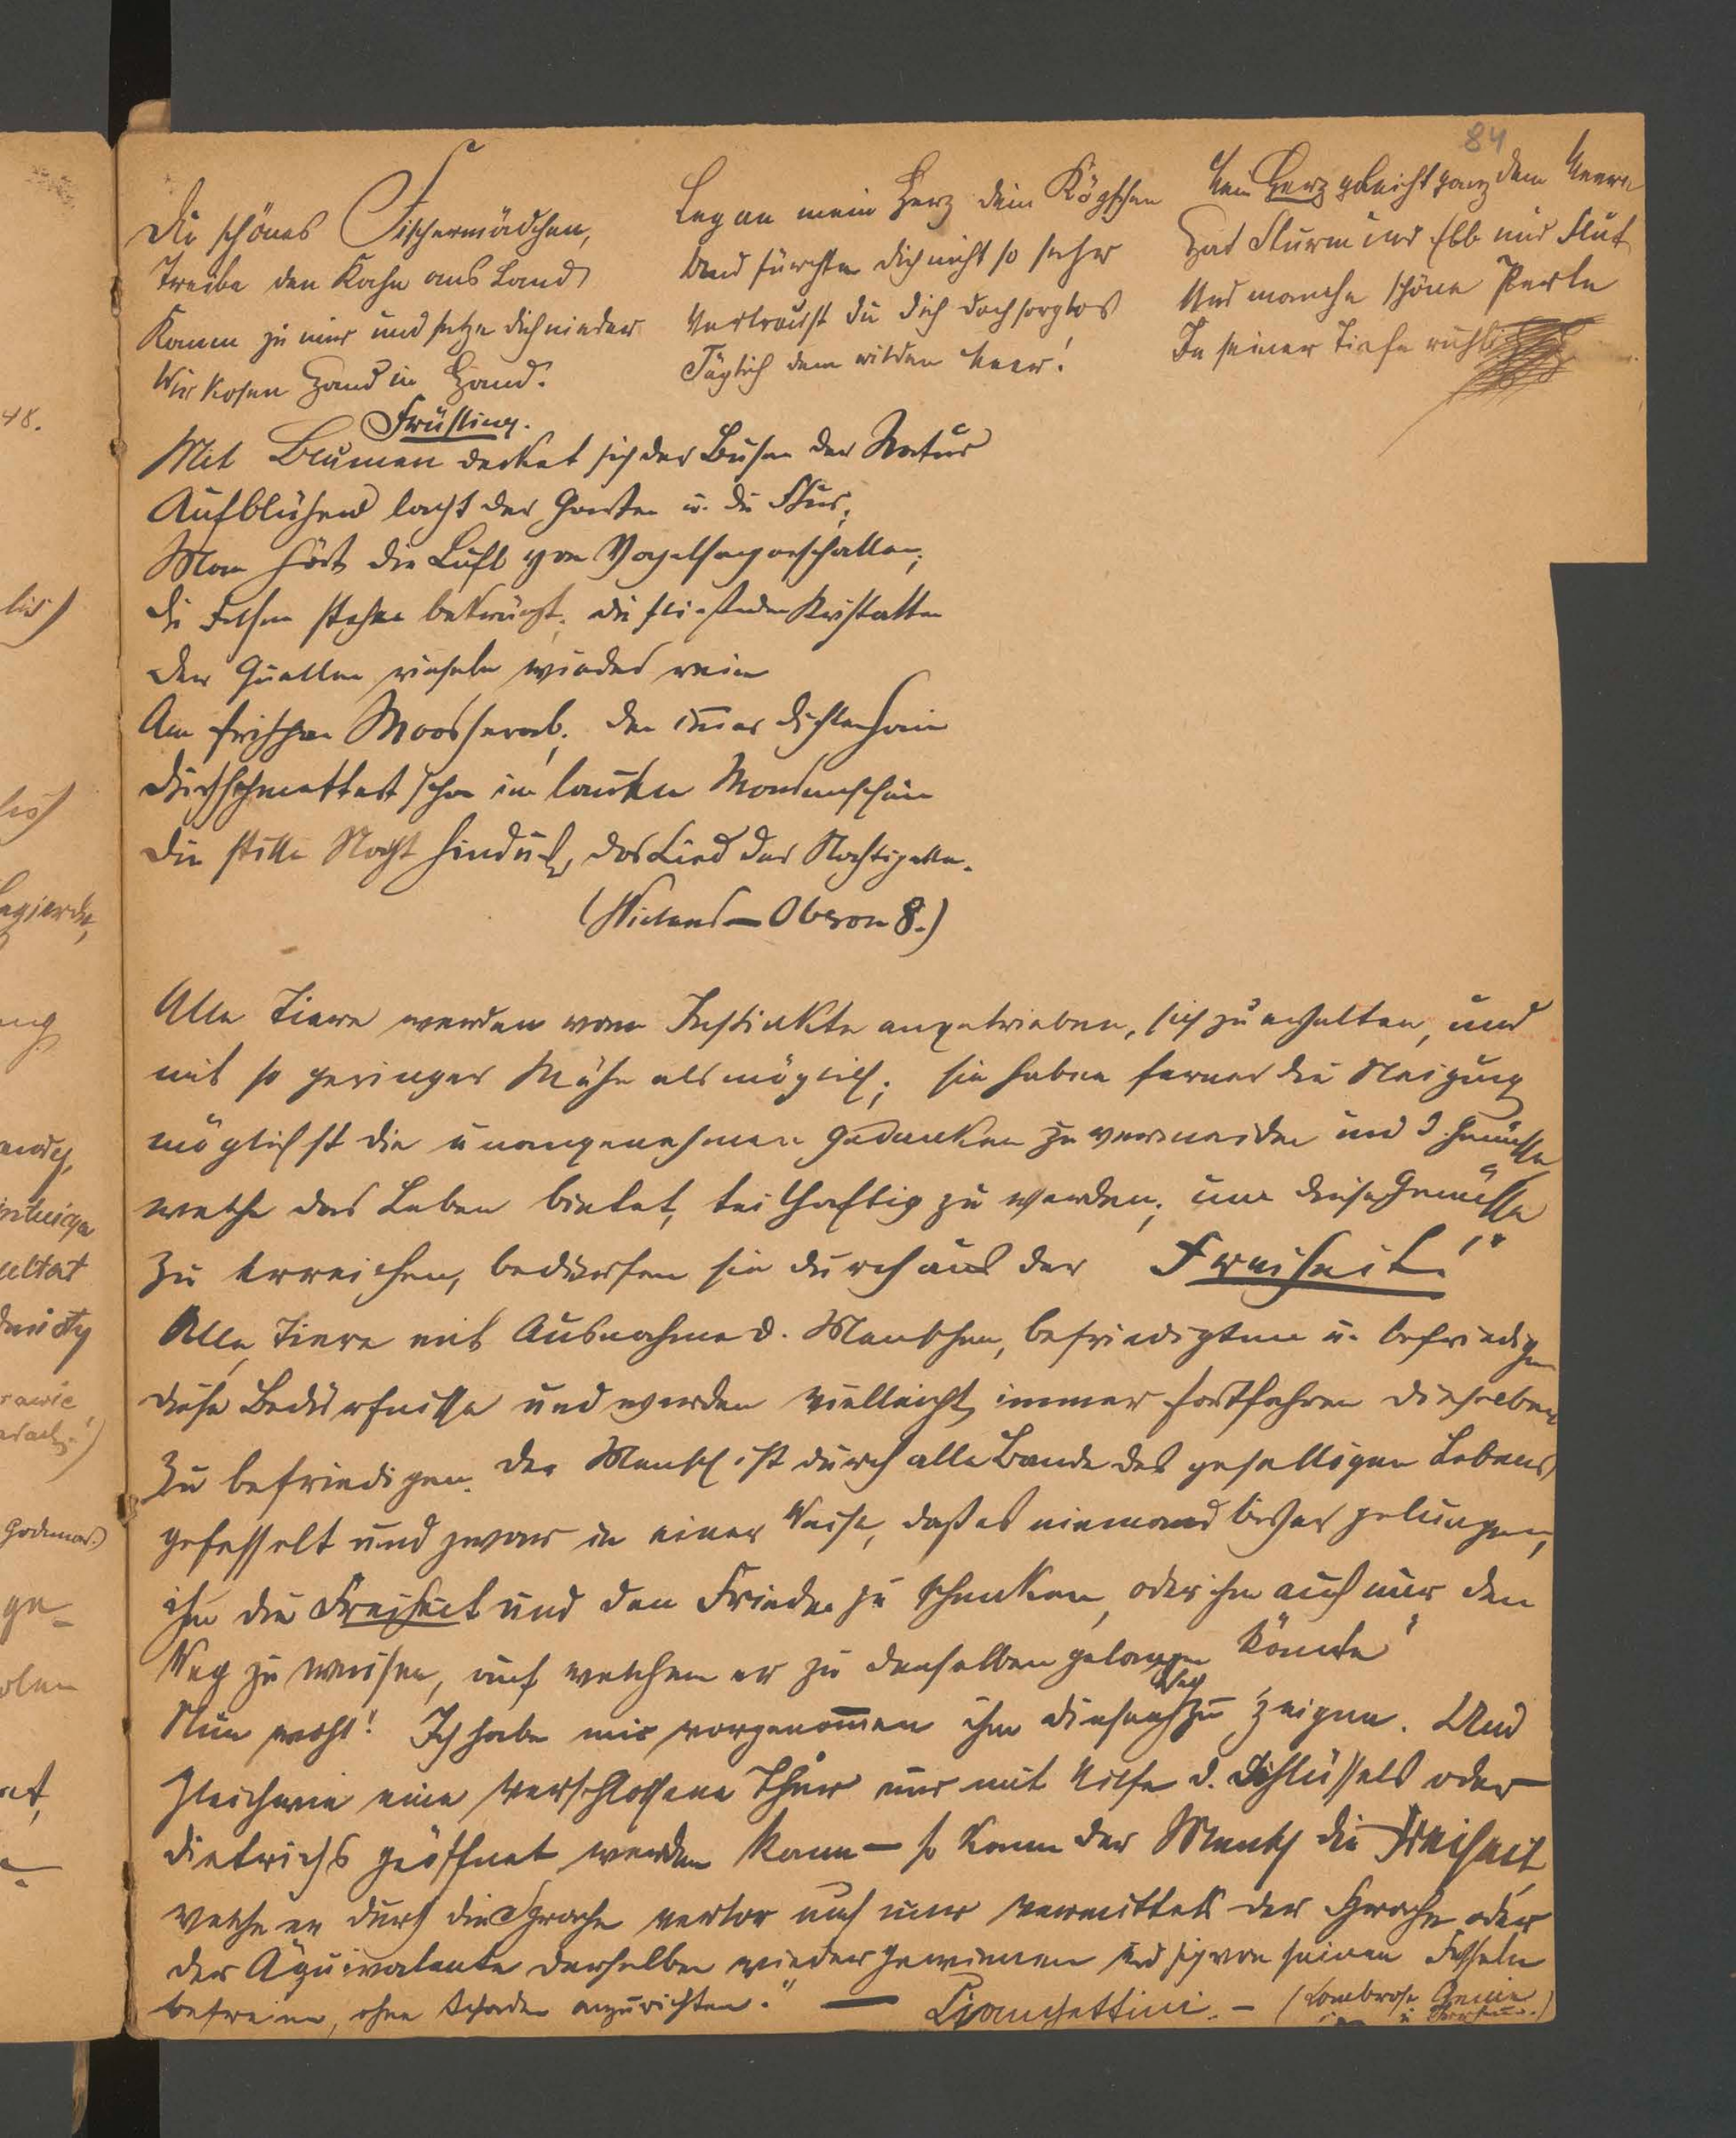 84
Du schönes Fischermädchen,
Treibe den Kahn ans Land
Komm zu mir und setze dich nieder
Wir kosen Hand in Hand.
Leg an mein Herz dein Köpfchen
Und fürchte dich nicht so sehr
Vertraust du dich doch sorglos
Täglich dem wilden Meer!
Mein Herz gleicht ganz dem Meere
Hat Sturm und Ebb und Flut
Und manche schöne Perle
In seiner Tiefe ruht
Frühling.
Mit Blumen decket sich der Busen der Natur
Aufblühend lacht der Garten u. die Flur;
Man hört die Luft von Vogelsang erschallen;
die Felsen stehn bekränzt; die fließenden Kristallen
der Quellen rieseln wieder rein
Am frischen Moos herab; den im̄er dichtern Hain
durchschmettert schon im lauten Mondenschein
die stille Nacht hindurch, das Lied der Nachtigallen.
(Wieland — Oberon 8.)
Alle Tiere werden vom Instinkte angetrieben, sich zu erhalten, und
mit so geringer Mühe als möglich; sie haben ferner die Neigung
möglichst die unangenehmen Gedanken zu vermeiden und d. Genüsse
welche das Leben bietet, teilhaftig zu werden; um diese Genüsse
zu erreichen, bedürfen sie durchaus der Freiheit!"
Alle Tiere mit Ausnahme d. Menschen, befriedigten u. befriedigen
diese Bedürfnisse und werden vielleicht immer fortfahren dieselben
zu befriedigen. Der Mensch ist durch alle Bande des geselligen Lebens
gefesselt und zwar in einer Weise, daß es niemand bisher gelungen,
ihm die Freiheit und den Frieden zu schenken, oder ihm auch nur den
Weg zu weisen, auf welchem er zu denselben gelangen könnte"
Nun wohl! Ich habe mir vorgenom̄en ihm diesen Weg zu zeigen. Und
gleichwie eine verschlossene Thür nur mit Hilfe d. Schlüssels oder
Dietrichs geöffnet werden kann — so kann der Mensch die Freiheit
welche er durch die Sprache verlor auch nur vermittels der Sprache oder
der Äquivalente derselben wieder gewinnen und sich von seinen Fesseln
befreien, ohne Schaden anzurichten." — Cianchettini. — (Lombroso Genie
u.